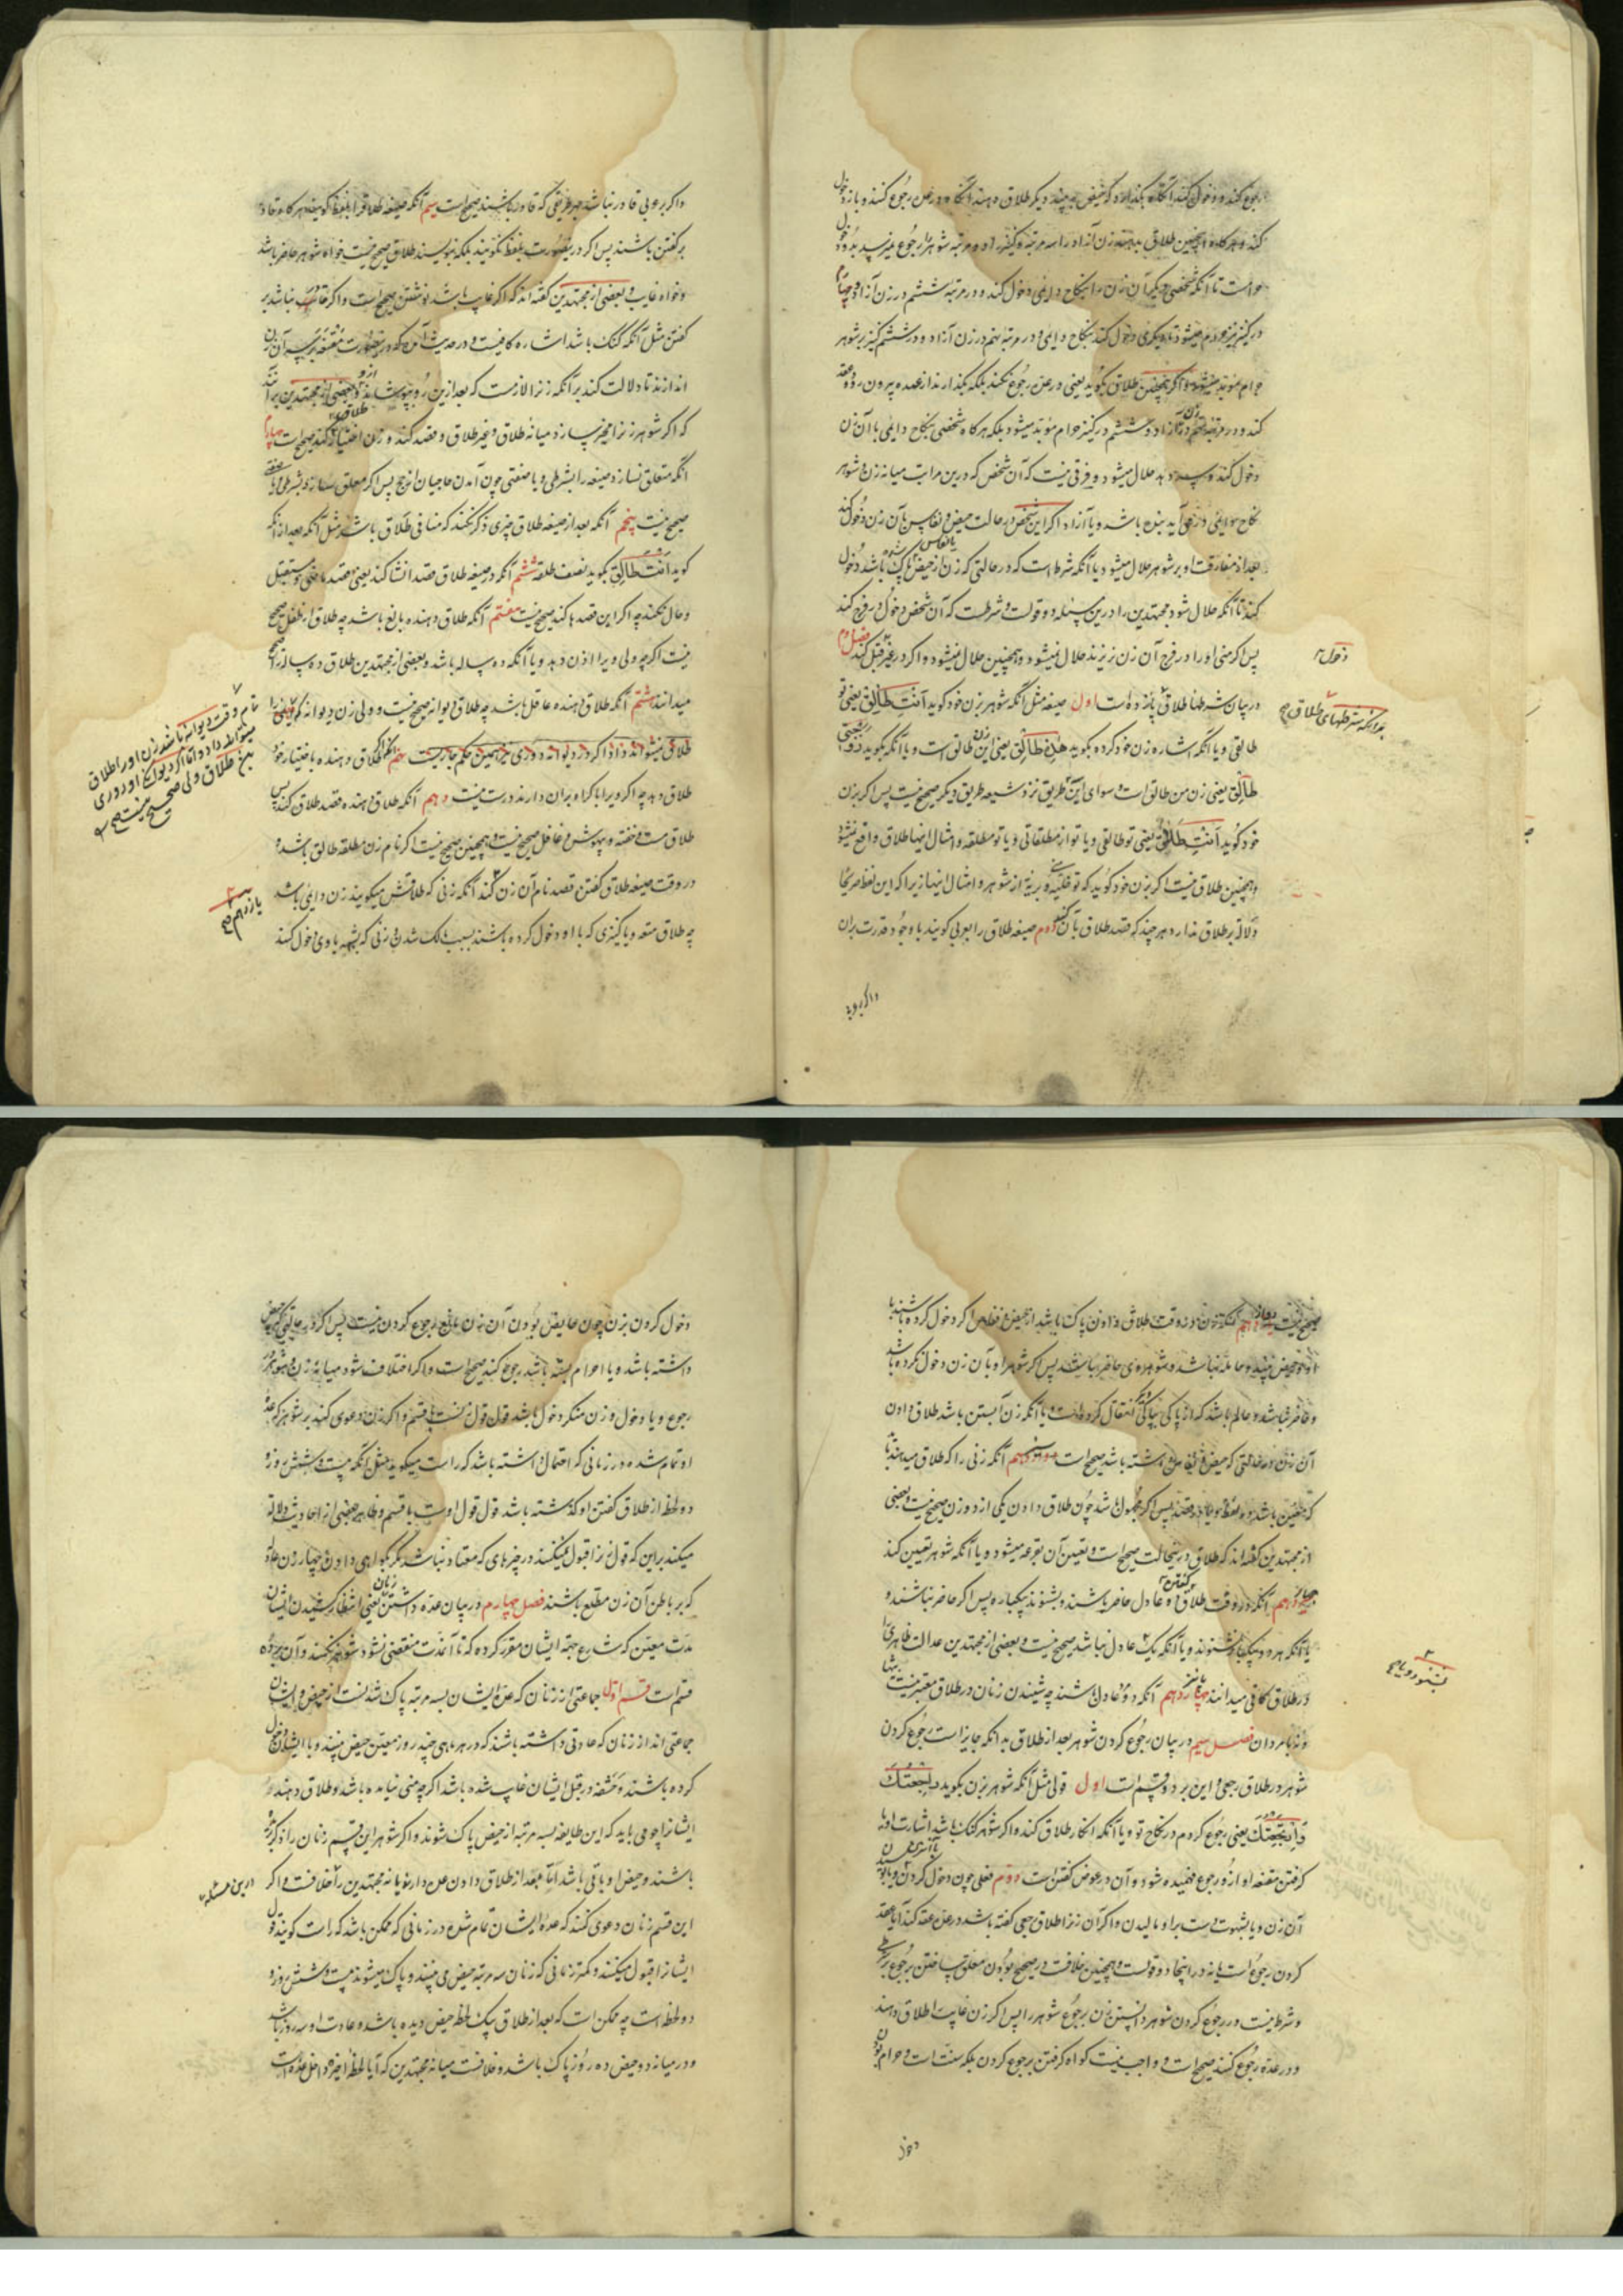 رجوع کند و دخول کند آنگاه بگذارد که حیض به بیند دیگر طلاق دهند آنگاه در عدّه رجوع کنند و باز دخول
کند و هرگاه همچنین طلاق بدهند زن آزاد را سه مرتبه و کنیز را دو مرتبه شوهر را رجوع نمیرسد بدو و
حرامست تا آنکه شخصی دیگر آن زن را بنکاح دایمی دخول کند و در مرتبه ششم در زن آزاد و چهارم
در کنیز نیز حرام میشود تا دیگری دخول کند بنکاح دایمی و در مرتبه نهم در زن آزاد و در ششم کنیز بر شوهر
حرام مؤبد میشود و اگر همچنین طلاق نگوید یعنی در عدّه رجوع نکند بلکه بگذارد تا از عده بیرون رود و عقد
کند و در مرتبه نهم در زن آزاد و ششم در کنیز حرام مؤبد نمیشود بلکه هرگاه شخصی بنکاح دایمی با آن زن
دخول کند و بدهد حلال میشود و فرقی نیست که آن شخص که درین مراتب میانه زن و شوهر
نکاح دایمی در می‌آید بنده باشد و یا آزاد اگر این شخص در حالت حیض و نفاس با آن زن دخول کند
بعد از مفارقت او بر شوهر حلال میشود یا آنکه شرط است که در حالتی که زن از حیض یا نفاس پاک شده باشد دخول
کند تا آنکه حلال شود مجتهدین را درین مسئله دو قولست و شرطست که آن شخص دخول در فرج کند
پس اگر منی او را در فرج آن زن بریزند حلال نمیشود و همچنین حلال نمیشود اگر در غیر قبل کند فصل دوم
دخول
در بیان شرطهای طلاق پانزده است اول صیغه مثل آنکه شوهر بزن خود گوید اَنتِ طالِق یعنی تو
بدانکه شرطهای طلاق صح
طالقی و یا آنکه اشاره بزن خود کرده بگوید هذِهِ طالِق یعنی این زن طالق است و یا آنکه بگوید زوجتی
طالِق یعنی زن من طالق است و سوای این طریق نزد شیعه طریق دیگر صحیح نیست پس اگر بزن
خود گوید اَنتِ طَلاق یعنی تو طالقی و یا تو از مطلقاتی و یا تو مطلقه و امثال اینها طلاق واقع نمیشود
و همچنین طلاق نیست اگر بزن خود گوید که تو خلیّه و بریّه از شوهر و امثال اینها زیرا که این لفظ صریحا
دلالة بر طلاق ندارد هر چند که قصد طلاق بآن کند دوم صیغه طلاق را بعربی گویند با وجود قدرت بران
و اگر بعربی
و اگر بعربی قادر نباشد بهر طریقی که قادر باشند صحیح است سیم آنکه صیغه طلاق را بلفظ گویند هرگاه قادر
بر گفتن باشند پس اگر درینصورت بلفظ نگویند بلکه بنویسند طلاق صحیح نیست خواه شوهر حاضر باشد
و خواه غایب و بعضی از مجتهدین گفته‌اند که اگر غایب باشد نوشتن صحیح است و اگر قادر نباشد بر
گفتن مثل آنکه گنگ باشد اشاره کافیست و در حدیث آمده که درینصورت مقنعه بر سر آن زن
اندازند تا دلالت کند بر آنکه زن را لازمست که بعد ازین رو بپوشاند ازو و بعضی از مجتهدین برآنند
که اگر شوهر زن را مخیر سازد میانه طلاق و غیر طلاق و قصد کند و زن اختیار طلاق کند صحیح است چهارم
آنکه متعلق نسازد صیغه را بشرطی و یا صفتی چون آمدن حاجیان از حج پس اگر معلق سازد بشرطی و یا صفتی
صحیح نیست پنجم آنکه بعد از صیغه طلاق چیزی ذکر نکنند که منافی طلاق باشد مثل آنکه بعد از آنکه
گوید اَنتِ طالِق بگوید نصف طلقه ششم آنکه در صیغه طلاق قصد انشا کند یعنی قصد ماضی و مستقبل
و حال نکند چه اگر این قصدها کند صحیح نیست هفتم آنکه طلاق دهنده بالغ باشد چه طلاق از طفل صحیح
نیست اگرچه ولی ویرا اذن دهد و یا آنکه ده ساله باشد و بعضی از مجتهدین طلاق ده ساله را صحیح
میدانند هشتم آنکه طلاق دهنده عاقل باشد چه طلاق دیوانه صحیح نیست و ولی زن دیوانه که
تمام وقت دیوانه باشد زن او را طلاق
میتواند داد و اما اگر دیوانگی او دوری
بود طلاق ولی صحیح نیست صح
طلاق میتواند داد اگر در دیوانه دوری نیز همین حکم جاریست نهم آنکه طلاق دهنده باختیار خود
طلاق دهد چه اگر ویرا باکراه بران دارند درست نیست دهم آنکه طلاق دهنده قصد طلاق کند پس
طلاق مست و خفته و بیهوش و غافل صحیح نیست و همچنین صحیح نیست اگر نام زن مطلقه طالق باشد و
در وقت صیغه طلاق گفتن قصد نام آن زن کند آنکه زنی که طلاقش میگویند زن دایمی باشد
یازدهم صح
چه طلاق متعه و یا کنیزی که با او دخول کرده باشند بسبب ملک شدن و زنی که بشبهه با وی دخول کنند
صحیح نیست دوازدهم آنکه زن در وقت طلاق دادن پاک باشد از حیض و نفاس اگر دخول کرده باشند با
او و حیض بیند و حامله نباشد و شوهر وی حاضر باشد پس اگر شوهر او بآن زن دخول نکرده باشد
و حاضر نباشد و عالم باشد که از پاکی بپاکی دیگر انتقال کرده است و یا آنکه زن آبستن باشد طلاق دادن
آن زن در حالتی که حیض داشته باشد صحیح است سیزدهم آنکه زنی را که طلاق میدهند باید
که معین باشد در لفظ و یا در قصد پس اگر مجهول باشد چون طلاق دادن یکی از دو زن صحیح نیست و بعضی
از مجتهدین گفته‌اند که طلاق درینحالت صحیح است و تعیین آن بقرعه میشود و یا آنکه شوهر تعیین کند
چهاردهم آنکه در وقت طلاق گفتن دو عادل حاضر باشند و بشنوند بیکباره پس اگر حاضر نباشند و
یا آنکه هر دو بیکبار نشنوند و یا آنکه یک عادل نباشد صحیح نیست و بعضی از مجتهدین عدالت ظاهری را
بشنود و یا صح
در طلاق کافی میدانند پانزدهم آنکه دو عادل باشند چه شنیدن زنان در طلاق معتبر نیست تنها
و نه با مردان فصل سیم در بیان رجوع کردن شوهر بعد از طلاق بدانکه جایز است رجوع کردن
شوهر در طلاق رجعی و این بر دو قسم است اول قولی مثل آنکه شوهر بزن بگوید راجعتک
و ارتجعتک یعنی رجوع کردم در نکاح تو و یا آنکه انکار طلاق کند و اگر شوهر گنگ باشد اشارت او با
گرفتن مقنعه او ازو رجوع فهمیده شود و آن در عوض گفتن است دوم فعلی چون دخول کردن و یا بوسیدن
آن زن و یا بشهوت دست بر او مالیدن و اگر آن زن را طلاق رجعی گفته باشد در عدّه عقد کند آیا عقد
کردن رجوع است یا نه در اینجا دو قولست و همچنین خلافست در صحیح بودن معلق ساختن رجوع بشرطی
و شرط نیست در رجوع کردن شوهر دانستن زن برجوع شوهر را پس اگر زن غایب را طلاق دهند
و در عده رجوع کنند صحیح است و واجب نیست گواه گرفتن برجوع کردن بلکه سنت است و حرام بودن
دخول
دخول کردن بزن چون حایض بودن آن زن مانع رجوع کردن نیست پس اگر در حالتی که حیض
داشته باشد و یا احرام بسته باشد رجوع کند صحیح است و اگر اختلاف شود میانه زن و شوهر در
رجوع و یا دخول و زن منکر دخول باشد قول قول زنست با قسم و اگر زن دعوی کند بر شوهر که عدّه
او تمام شده در زمانی که احتمال داشته باشد که راست میگوید مثل آنکه بیست و شش روز و
دو لحظه از طلاق گفتن او گذشته باشد قول قول اوست با قسم و ظاهر بعضی از احادیث دلالة
میکند براین که قول زن را قبول نمیکنند در چیزهای که معتاد نباشد مگر بگواهی دادن چهار زن عادل
که بر باطن آن زن مطلع باشند فصل چهارم در بیان عده داشتن زنان یعنی انتظار کشیدن ایشان
مدت معین که شارع جهة ایشان مقرر کرده که تا آنمدت منقضی نشود شوهر نکنند و آن بر ده
قسم است قسم اول جماعتی از زنان که عده ایشان بسه مرتبه پاک شدنست از حیض و ایشان
جماعتی‌اند از زنان که عادتی داشته باشند که در هر ماهی چند روز معین حیض بینند و با ایشان دخول
کرده باشند و حشفه در قبل ایشان غایب شده باشد اگرچه منی نیامده باشد و طلاق دهند
ایشان را چه می‌باید که این طایفه بسه مرتبه از حیض پاک شوند و اگر شوهر این قسم زنان را
باشند و حیض او باقی باشد آیا بعد از طلاق دادن عده دارند یا نه مجتهدین را خلافست و اگر
درین مسئله
این قسم زنان دعوی کنند که عدهٔ ایشان تمام شده در زمانی که ممکن باشد که راست گویند قول
ایشان را قبول میکنند و کمتر زمانی که زنان سه مرتبه حیض می‌بینند و پاک میشوند بیست و شش روز و
دو لحظه است چه ممکن است که بعد از طلاق بیک لحظه حیض دیده باشد و عادت او سه روز باشد
و در میانه دو حیض ده روز پاک باشد و خلافست میانه مجتهدین که آیا لحظه اخیره داخل عده است